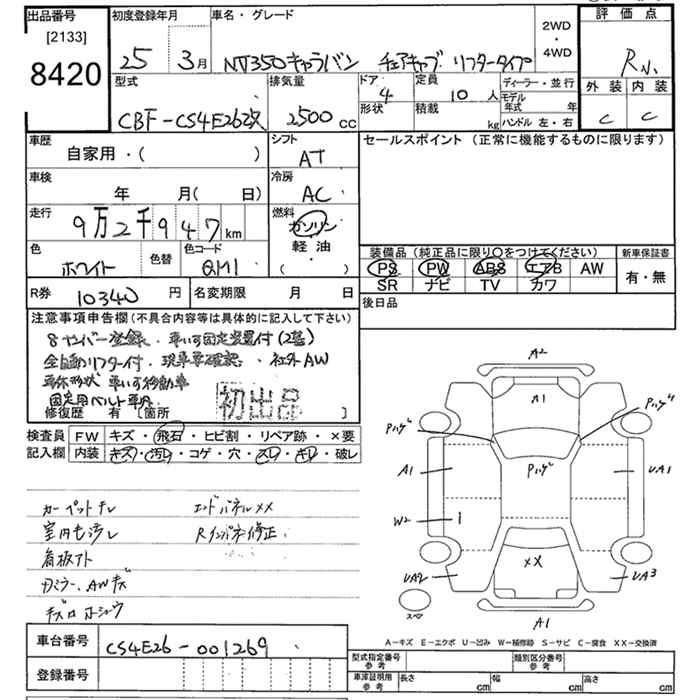 出品番号 初度登録年月 車名・グレード 2WD ・ 4WD 評価点
[2133]
8420 25 3月 NV350キャラバン チェアキャブ リフタータイプ R
外装 内装
C C
型式 CBF-CS4E26改 排気量 2500cc ドア 4 定員 10人 ディーラー・並行
形状 積載 kg モデル年式 年
ハンドル 左・右
車歴 自家用・( ) シフト AT セールスポイント(正常に機能するものに限ります)
車検 年 月( 日) 冷房 AC
走行 9万2千947km 燃料 ガソリン 軽油・( )
色 ホワイト 色替 色コード QM1
装備品(純正品に限り○をつけてください) 新車保証書
PS PW ABS エアB AW 有・無
SR ナビ TV カワ
R券 10340円 名変期限 月 日 後日品
注意事項申告欄(不具合内容等は具体的に記入して下さい)
8ナンバー登録・車いす固定装置付(2基)
全自動リフター付・現車要確認・社外AW
車体形状 車いす移動車
固定用ベルト車内
初出品
修復歴 有(箇所 )
検査員 FW キズ・飛石・ヒビ割・リペア跡・×要
記入欄 内装 キズ・汚レ・コゲ・穴・スレ・キレ・破レ
カーペットキレ エンドパネルXX
室内モ汚レ Rインパネ修正
看板アト
Fミラー、AWキズ
キズ ホシュウ
車台番号 CS4E26-001269
登録番号
A2
A1
Pハゲ Pハゲ
Pハゲ
A1 UA1
W2
XX
UA2 UA3
スペア
A1
A-キズ E-エクボ U-凹み W-補修跡 S-サビ C-腐食 XX-交換済
型式指定番号 参考 類別区分番号 参考
車庫証明用 参考 長さ cm 幅 cm 高さ cm